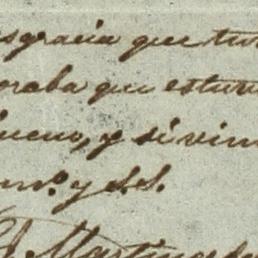 sgracia que tu
oraba que estuv
ueno, y si vin
mo. y S.S.
J. Martinez